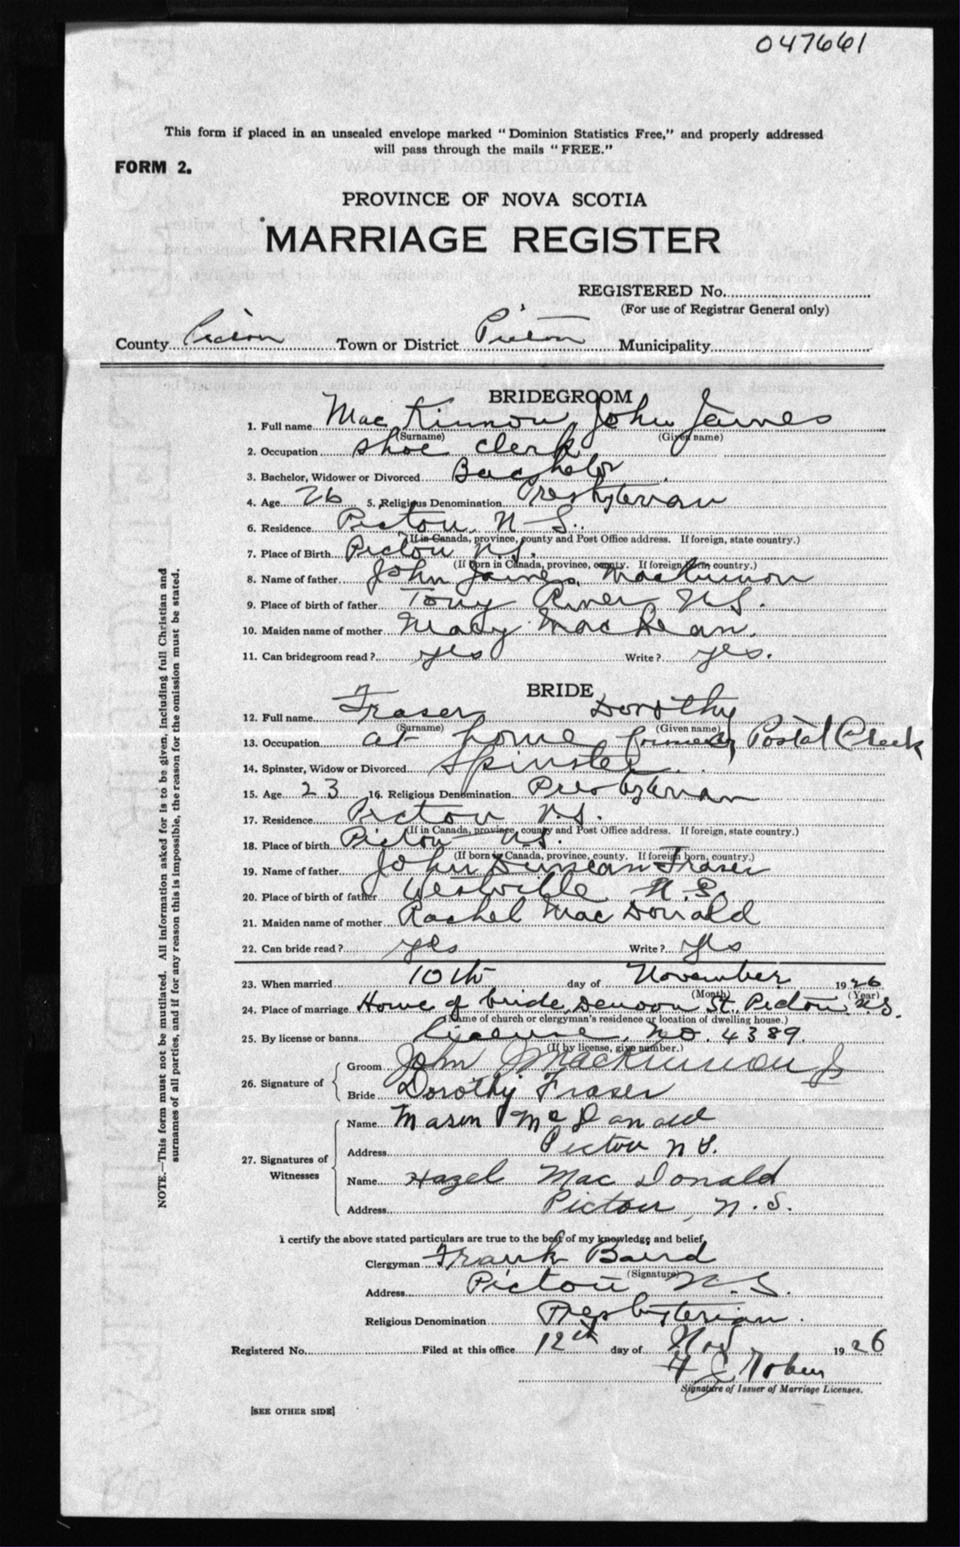 047661
This form if placed in an unsealed envelope marked "Dominion Statistics Free," and properly addressed
will pass through the mails "FREE."
FORM 2.
PROVINCE OF NOVA SCOTIA
MARRIAGE REGISTER
REGISTERED No.
(For use of Registrar General only)
County Pictou Town or District Pictou Municipality
BRIDEGROOM
1. Full name MacKinnon, John James
(Surname) (Given name)
2. Occupation shoe clerk
3. Bachelor, Widower or Divorced Bachelor
4. Age 26 5. Religious Denomination Presbyterian
6. Residence Pictou N-S.
(If in Canada, province, county and Post Office address. If foreign, state country.)
7. Place of Birth Pictou N.S.
(If born in Canada, province, county. If foreign born, country.)
8. Name of father John James MacKinnon
9. Place of birth of father Tony River N.S.
10. Maiden name of mother Mary MacLean.
11. Can bridegroom read? yes Write? yes.
BRIDE
12. Full name Fraser Dorothy
(Surname) (Given name)
13. Occupation at home formerly Postal Clerk
14. Spinster, Widow or Divorced Spinster
15. Age 23 16. Religious Denomination Presbyterian
17. Residence Pictou N.S.
(If in Canada, province, county and Post Office address. If foreign, state country.)
18. Place of birth Pictou N.S.
(If born in Canada, province, county. If foreign born, country.)
19. Name of father John Duncan Fraser
20. Place of birth of father Westville N.S.
21. Maiden name of mother Rachel MacDonald
22. Can bride read? yes Write? yes
23. When married 10th day of November 1926
(Month) (Year)
24. Place of marriage Home of bride, Denoon St. Pictou, N.S.
(Name of church or clergyman's residence or location of dwelling house.)
25. By license or banns License, no. 4389.
(If by license, give number.)
26. Signature of
Groom John J MacKinnon Jr
Bride Dorothy Fraser
27. Signatures of Witnesses
Name McDonald
Address Pictou N.S.
Name Hazel MacDonald
Address Pictou, N.S.
I certify the above stated particulars are true to the best of my knowledge and belief.
Clergyman Frank Baird
(Signature)
Address Pictou N.S.
Religious Denomination Presbyterian.
Registered No. Filed at this office 12th day of Nov 1926
Signature of Issuer of Marriage Licenses.
[SEE OTHER SIDE]
NOTE.—This form must not be mutilated. All information asked for is to be given, including full Christian and
surnames of all parties, and if for any reason this is impossible, the reason for the omission must be stated.